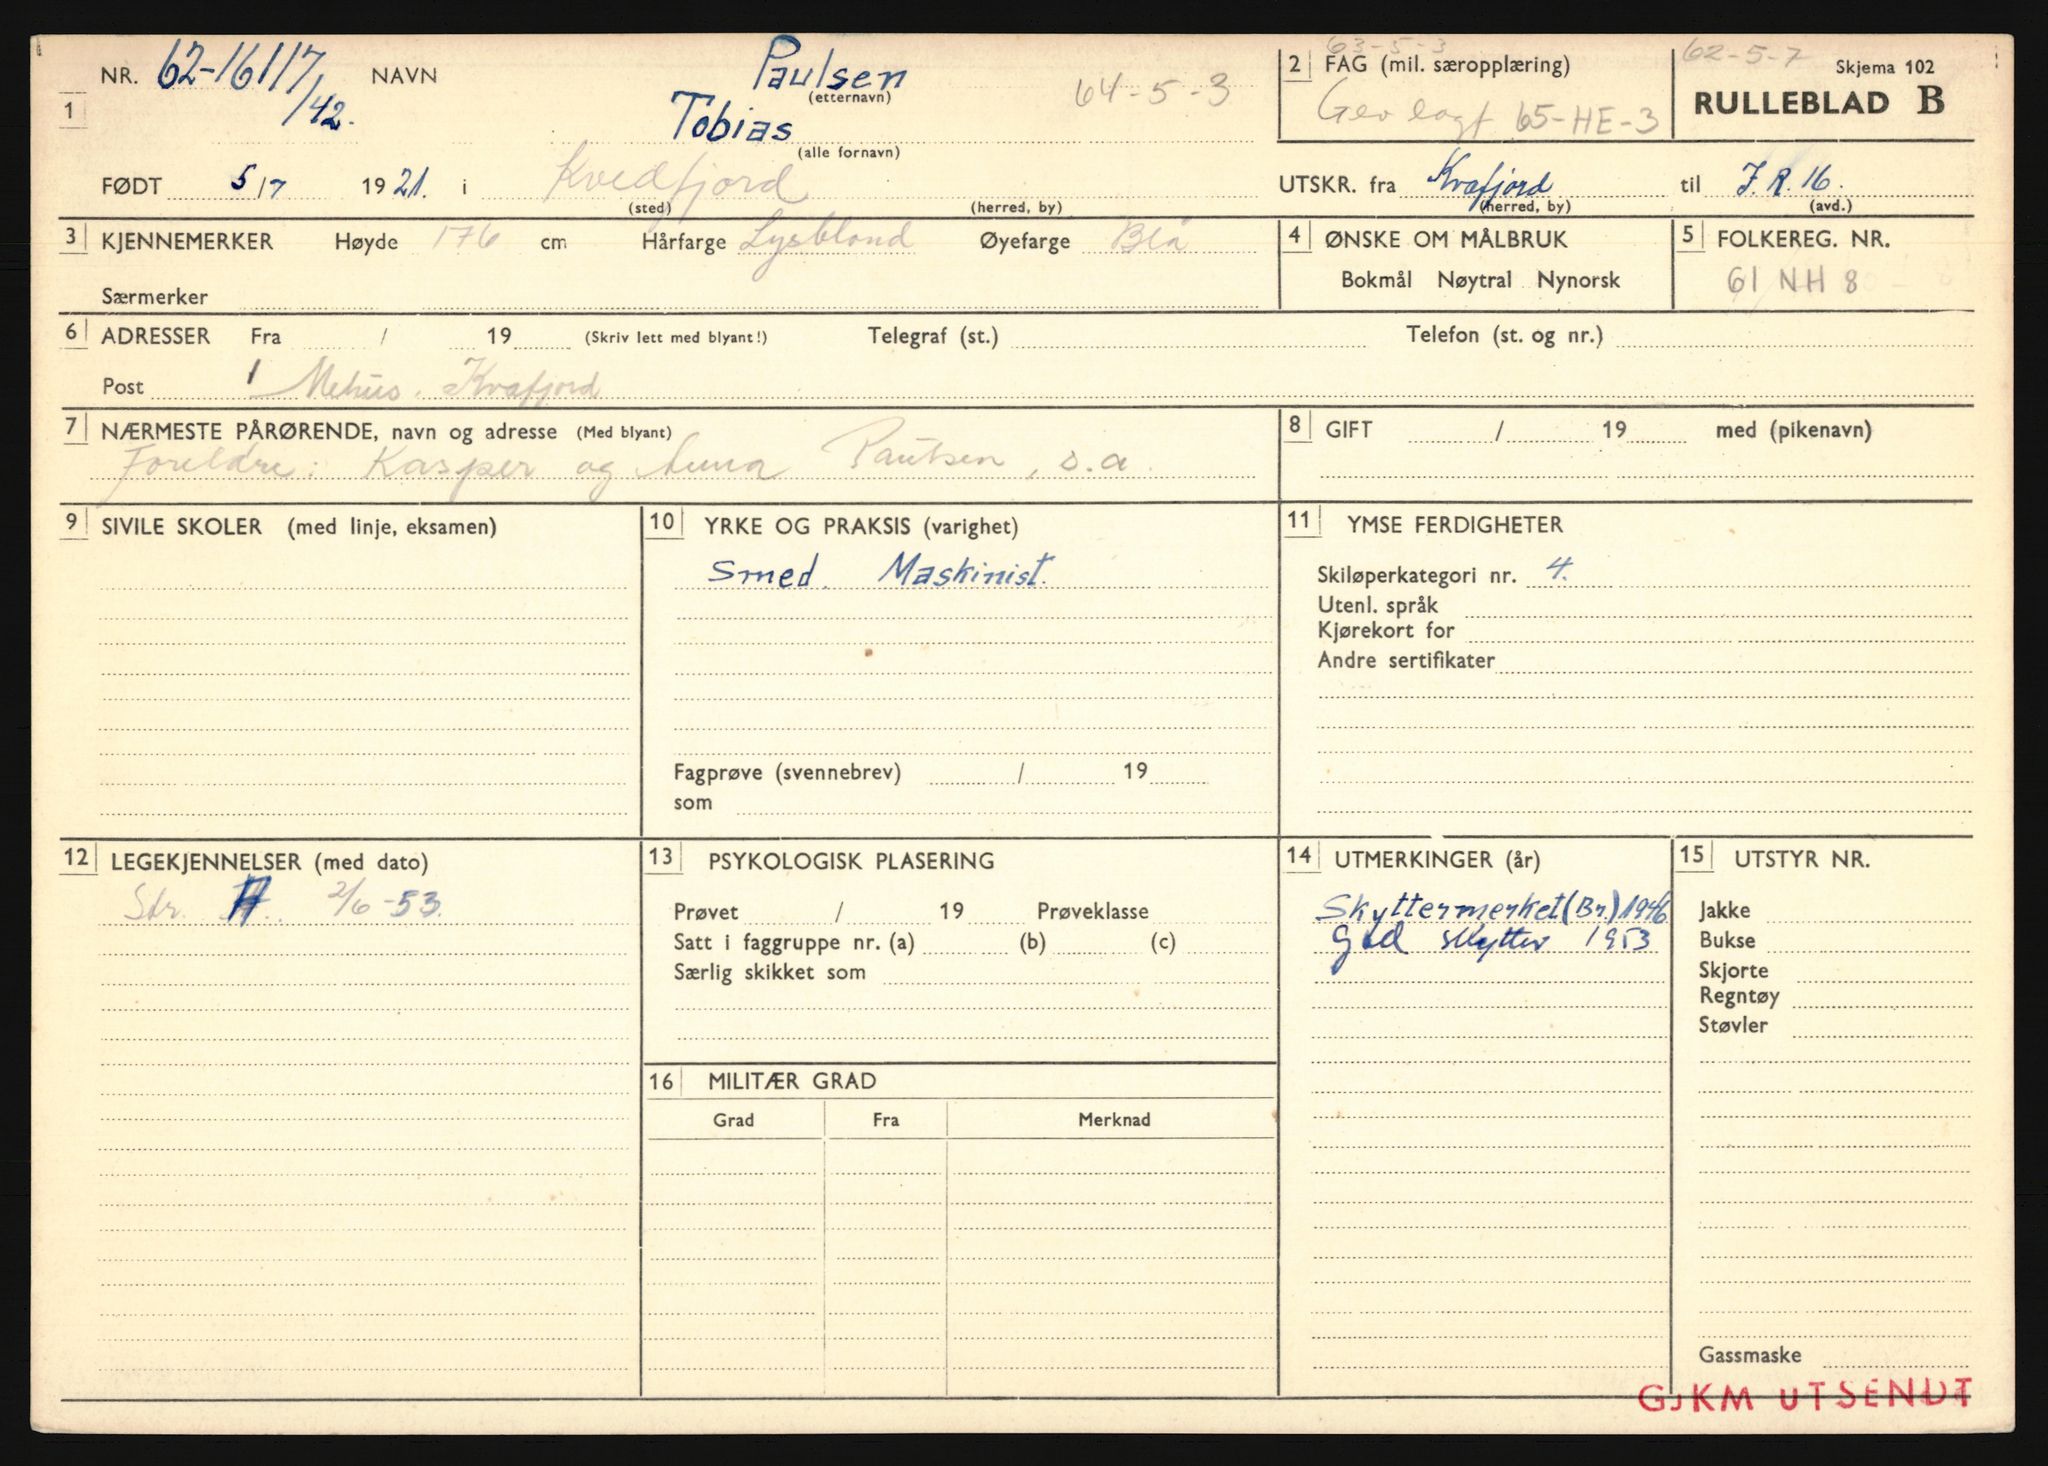 NR. 62-16117/42. NAVN Paulsen 64-5-3
(etternavn)
1 Tobias
(alle fornavn)
FØDT 5/7 1921. i Kvedfjord
(sted) (herred, by)
63-5-3
2 FAG (mil. særopplæring)
65-HE-3
62-5-7 Skjema 102
RULLEBLAD B
UTSKR. fra Kvæfjord til J.R. 16.
(herred, by) (avd.)
3 KJENNEMERKER Høyde 176 cm Hårfarge Lysblond Øyefarge Blå
Særmerker
4 ØNSKE OM MÅLBRUK
Bokmål Nøytral Nynorsk
5 FOLKEREG. NR.
61 NH 8
6 ADRESSER Fra / 19 (Skriv lett med blyant!) Telegraf (st.) Telefon (st. og nr.)
Post Kvæfjord
7 NÆRMESTE PÅRØRENDE, navn og adresse (Med blyant)
Foreldre: Kasper og Anna Paulsen, s.a.
8 GIFT / 19 med (pikenavn)
9 SIVILE SKOLER (med linje, eksamen)
10 YRKE OG PRAKSIS (varighet)
Smed. Maskinist.
Fagprøve (svennebrev) / 19
som
11 YMSE FERDIGHETER
Skiløperkategori nr. 4.
Utenl. språk
Kjørekort for
Andre sertifikater
12 LEGEKJENNELSER (med dato)
Str. 2/6-53.
13 PSYKOLOGISK PLASERING
Prøvet / 19 Prøveklasse
Satt i faggruppe nr. (a) (b) (c)
Særlig skikket som
14 UTMERKINGER (år)
Skyttermerket (Br.) 1946
God skytter 1953
15 UTSTYR NR.
Jakke
Bukse
Skjorte
Regntøy
Støvler
Gassmaske
16 MILITÆR GRAD
Grad Fra Merknad
GJKM UTSENDT